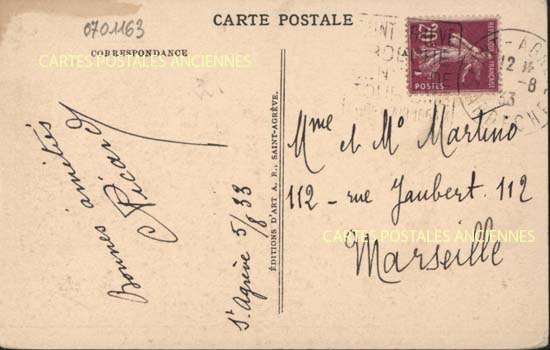 0701163
CARTE POSTALE
CORRESPONDANCE
CARTES POSTALES ANCIENNES
Bonnes amitiés
Ricard
St Agrève 5/8 33
ÉDITIONS D'ART A. R., SAINT-AGRÈVE.
POSTES
33
Mme et Mr Martino
112 - rue Jaubert. 112
CARTES POSTALES ANCIENNES
Marseille